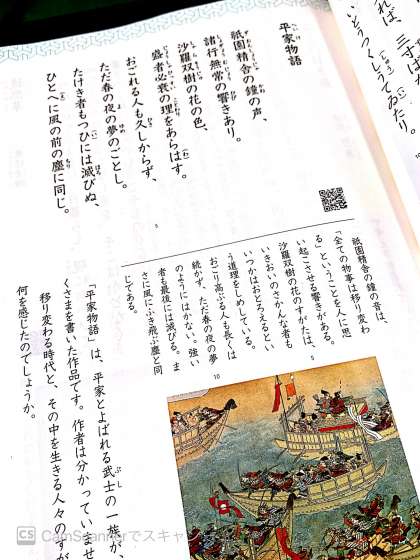 れば、三寸ば
いとうつくしうてゐたり。
平家物語
祇園精舎の鐘の声、
諸行無常の響きあり。
沙羅双樹の花の色、
盛者必衰の理をあらはす。
おごれる人も久しからず、
ただ春の夜の夢のごとし。
たけき者もつひには滅びぬ、
ひとへに風の前の塵に同じ。
5
祇園精舎の鐘の音は、
「全ての物事は移り変わ
る」ということを人に思
い起こさせる響きがある。
沙羅双樹の花のすがたは、
いきおいのさかんな者も
いつかはおとろえるとい
う道理をしめしている。
おごり高ぶる人も長くは
続かず、ただ春の夜の夢
のようにはかない。強い
者も最後には滅びる。ま
さに風にふき飛ぶ塵と同
じである。
5
10
「平家物語」は、平家とよばれる武士の一族が、
くさまを書いた作品です。作者は分かっていませ
移り変わる時代と、その中を生きる人々のすが
何を感じたのでしょうか。
CS CamScannerでスキャン